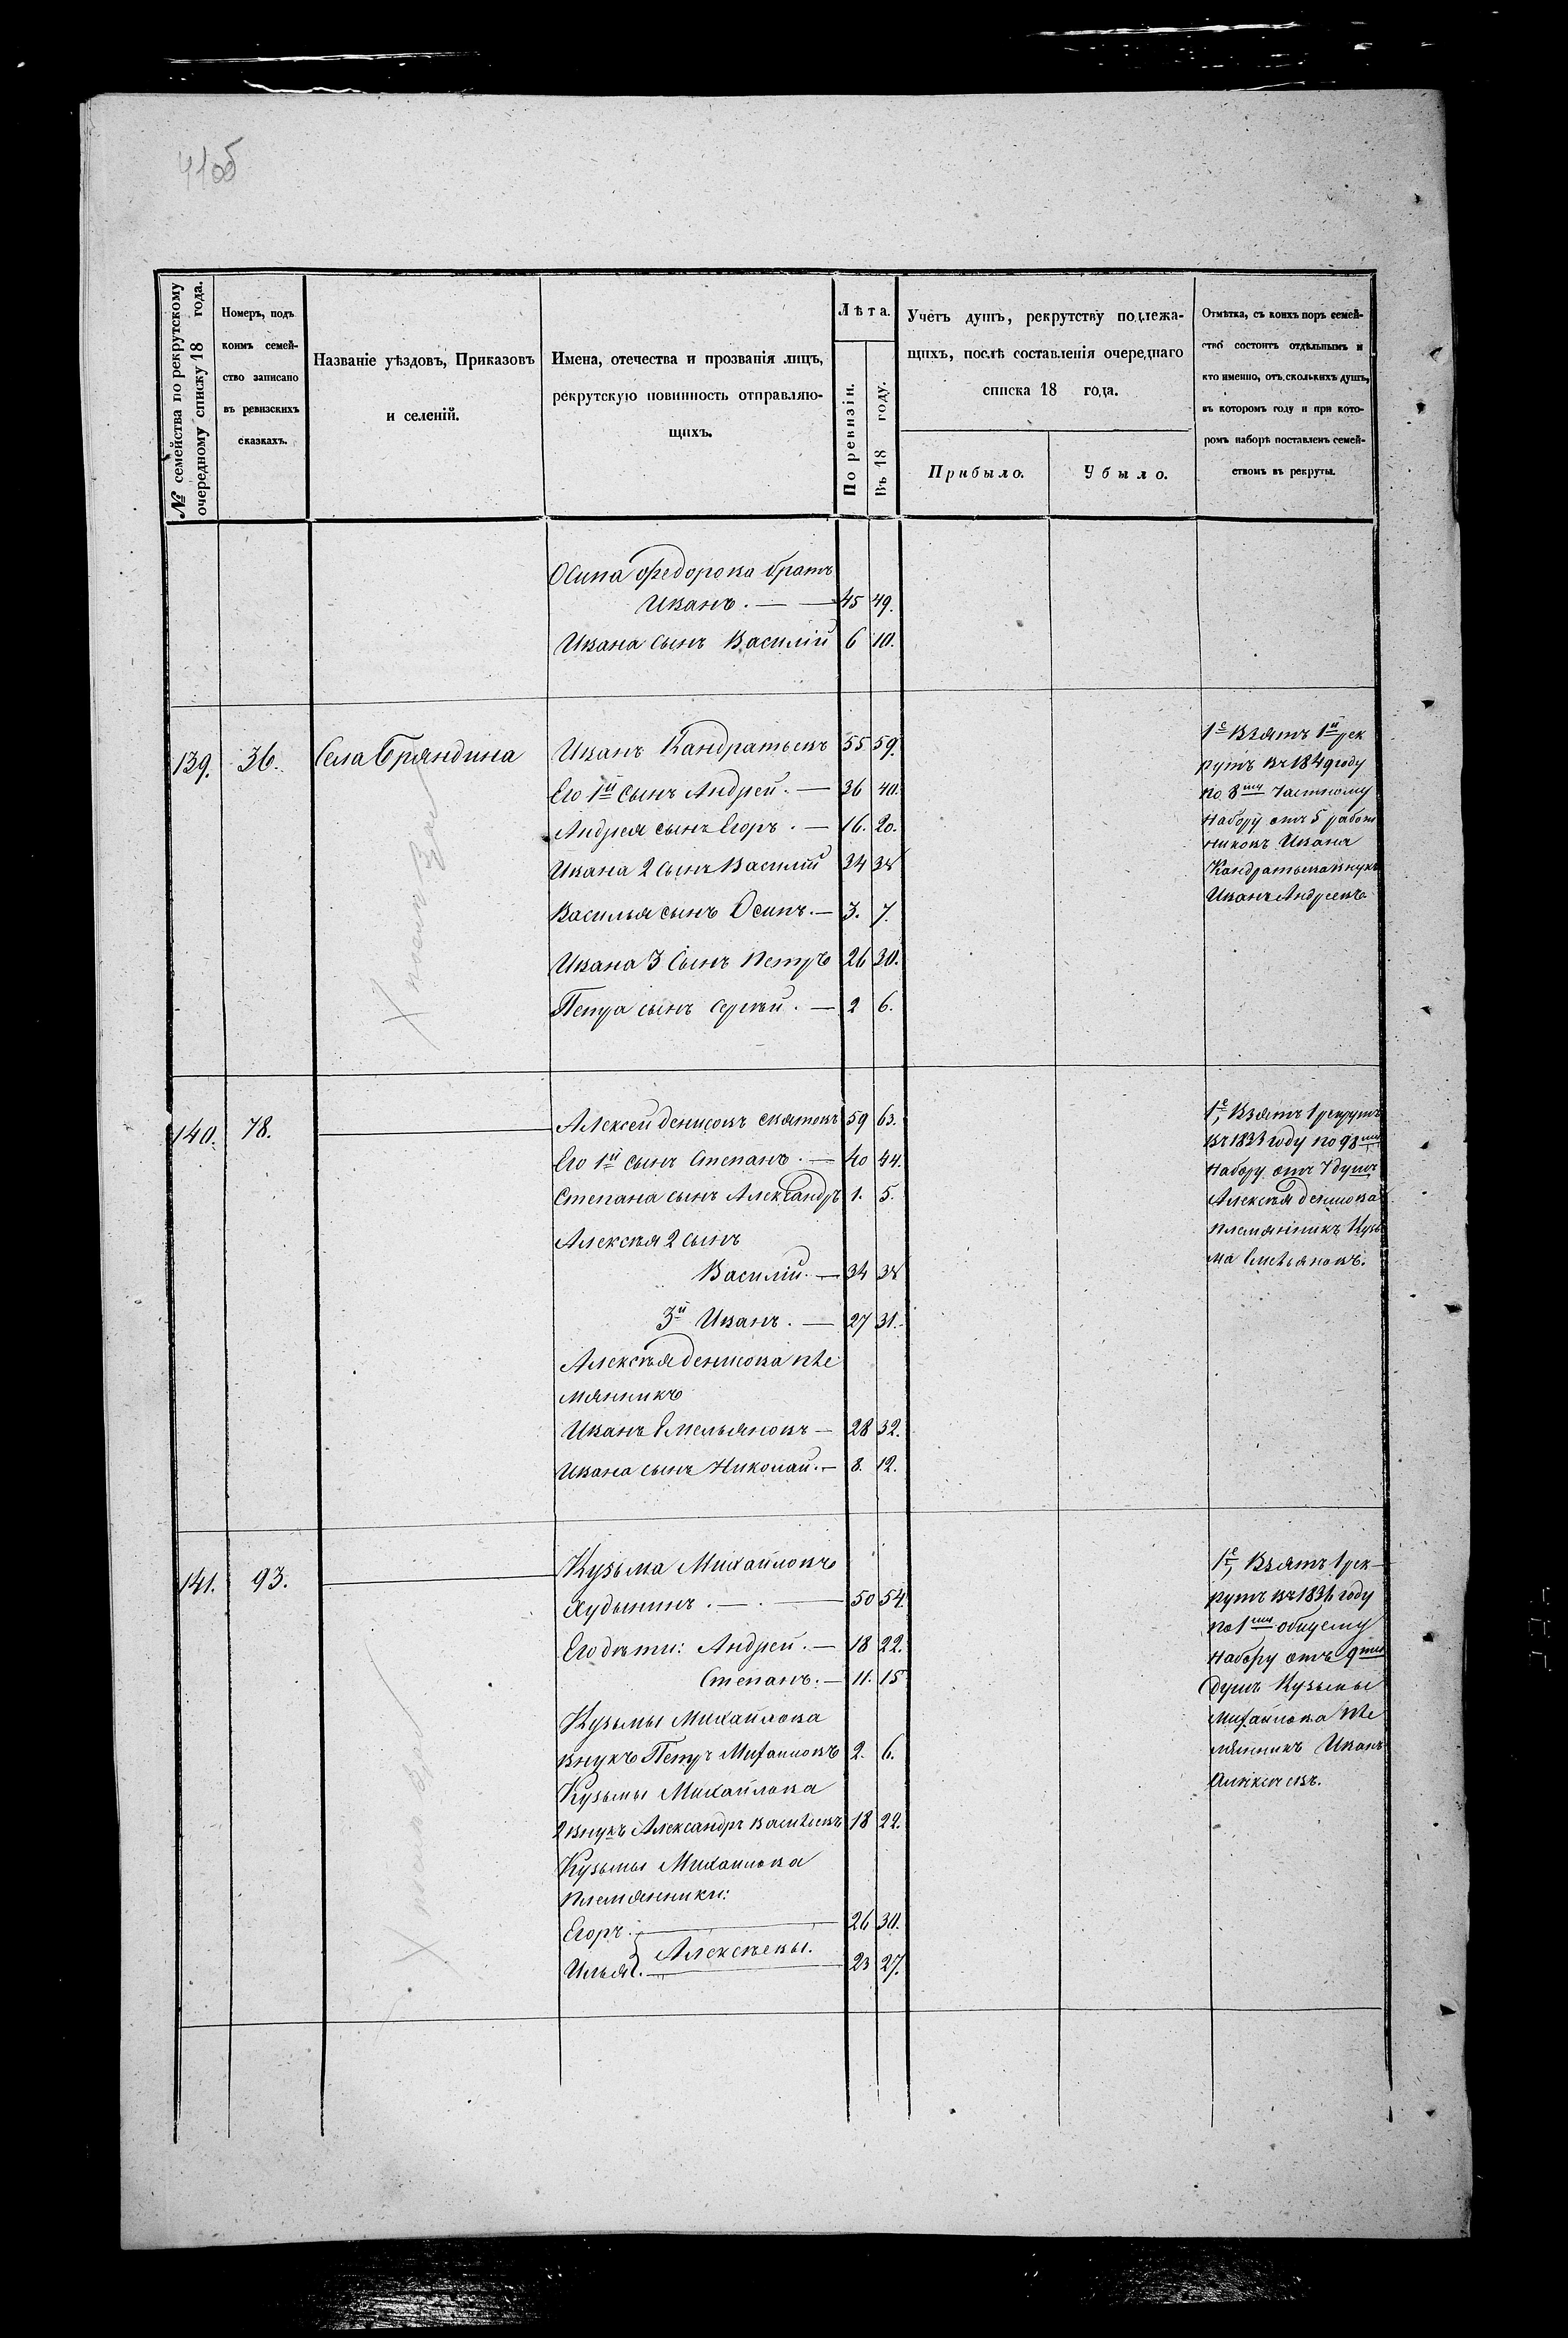 41об
№ семейства по рекрутскому
очередному списку 18 года.
Номеръ, подъ
коимъ семей-
ство записано
въ ревизскихъ
сказкахъ.
Названіе уѣздовъ, Приказовъ
и селеній.
Имена, отечества и прозванія лицъ,
рекрутскую повинность отправляю-
щихъ.
Лѣта.
По ревизіи.
Въ 18 году.
Учетъ душъ, рекрутству подлежа-
щихъ, послѣ составленія очереднаго
списка 18 года.
Прибыло.
Убыло.
Отмѣтка, съ коихъ поръ семей-
ство состоитъ отдѣльнымъ и
кто именно, отъ сколькихъ душъ,
въ котором году и при кото-
ромъ наборѣ поставленъ семей-
ствомъ въ рекруты.
Осипа Федорова братъ
Иванъ. — 45 49.
Ивана сынъ Василій 6 10.
139. 36. Села Бряндина
Иванъ Кандратьевъ 55 59.
Его 1й сынъ Андрей. — 36 40.
Андрея сынъ Егоръ. — 16. 20.
Ивана 2 сынъ Василій 34 38
Василья сынъ Осипъ. — 3. 7.
Ивана 3 сынъ Петръ 26 30.
Петра сынъ Сергѣй. — 2 6.
1е Взятъ 1й рек
рутъ въ 1849 году
по 8му частному
набору отъ 5 работ
никовъ Ивана
Кандратьева внукъ
Иванъ Андреевъ
140. 78.
Алексей Денисовъ Святовъ 59 63.
Его 1й сынъ Степанъ. — 40 44.
Степана сынъ Александръ 1. 5.
Алексѣя 2 сынъ
Василій. — 34 38
3й Иванъ. — 27 31.
Алексѣя Денисова пле
мянникъ
Иванъ Емельяновъ — 28 32.
Ивана сынъ Николай. — 8. 12.
1е, Взятъ 1 рекрутъ
въ 1833 году по 98му
набору отъ 7 душъ
Алексѣя Денисова
племянникъ Кузь
ма Емельяновъ.
141. 93.
Кузьма Михайловъ
Худышинъ. — 50 54.
Его дѣти: Андрей. — 18 22.
Степанъ. — 11. 15
Кузьмы Михайлова
внукъ Петръ Михаиловъ 2. 6.
Кузьмы Михайлова
2 внукъ Александръ Васильевъ 18 22.
Кузьмы Михаилова
племянники:
Егоръ. 26 30.
Алексѣевы.
Илья. 23 27.
1е, Взятъ 1 рек-
рутъ въ 1836 году
по 1му общему
набору отъ 9ти
душъ Кузьмы
Михаилова пле
мянникъ Иванъ
Алексѣевъ.